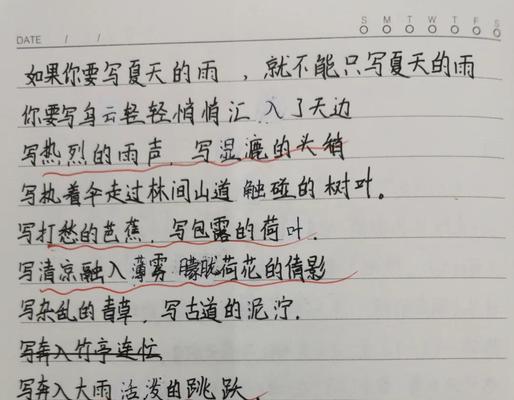 DATE / / S M T W T F S
如果你要写夏天的雨 ，就不能只写夏天的雨
你要写乌云轻轻悄悄汇 入了天边
写热烈的雨声，写湿漉的头梢
写执着伞走过林间山道 触碰的树叶。
写打愁的芭蕉，写包露的荷叶.
写清凉融入薄雾 朦胧荷花的倩影
写杂乱的青草，写古道的泥泞.
写奔入竹亭连忙
写奔入大雨活泼的跳跃.